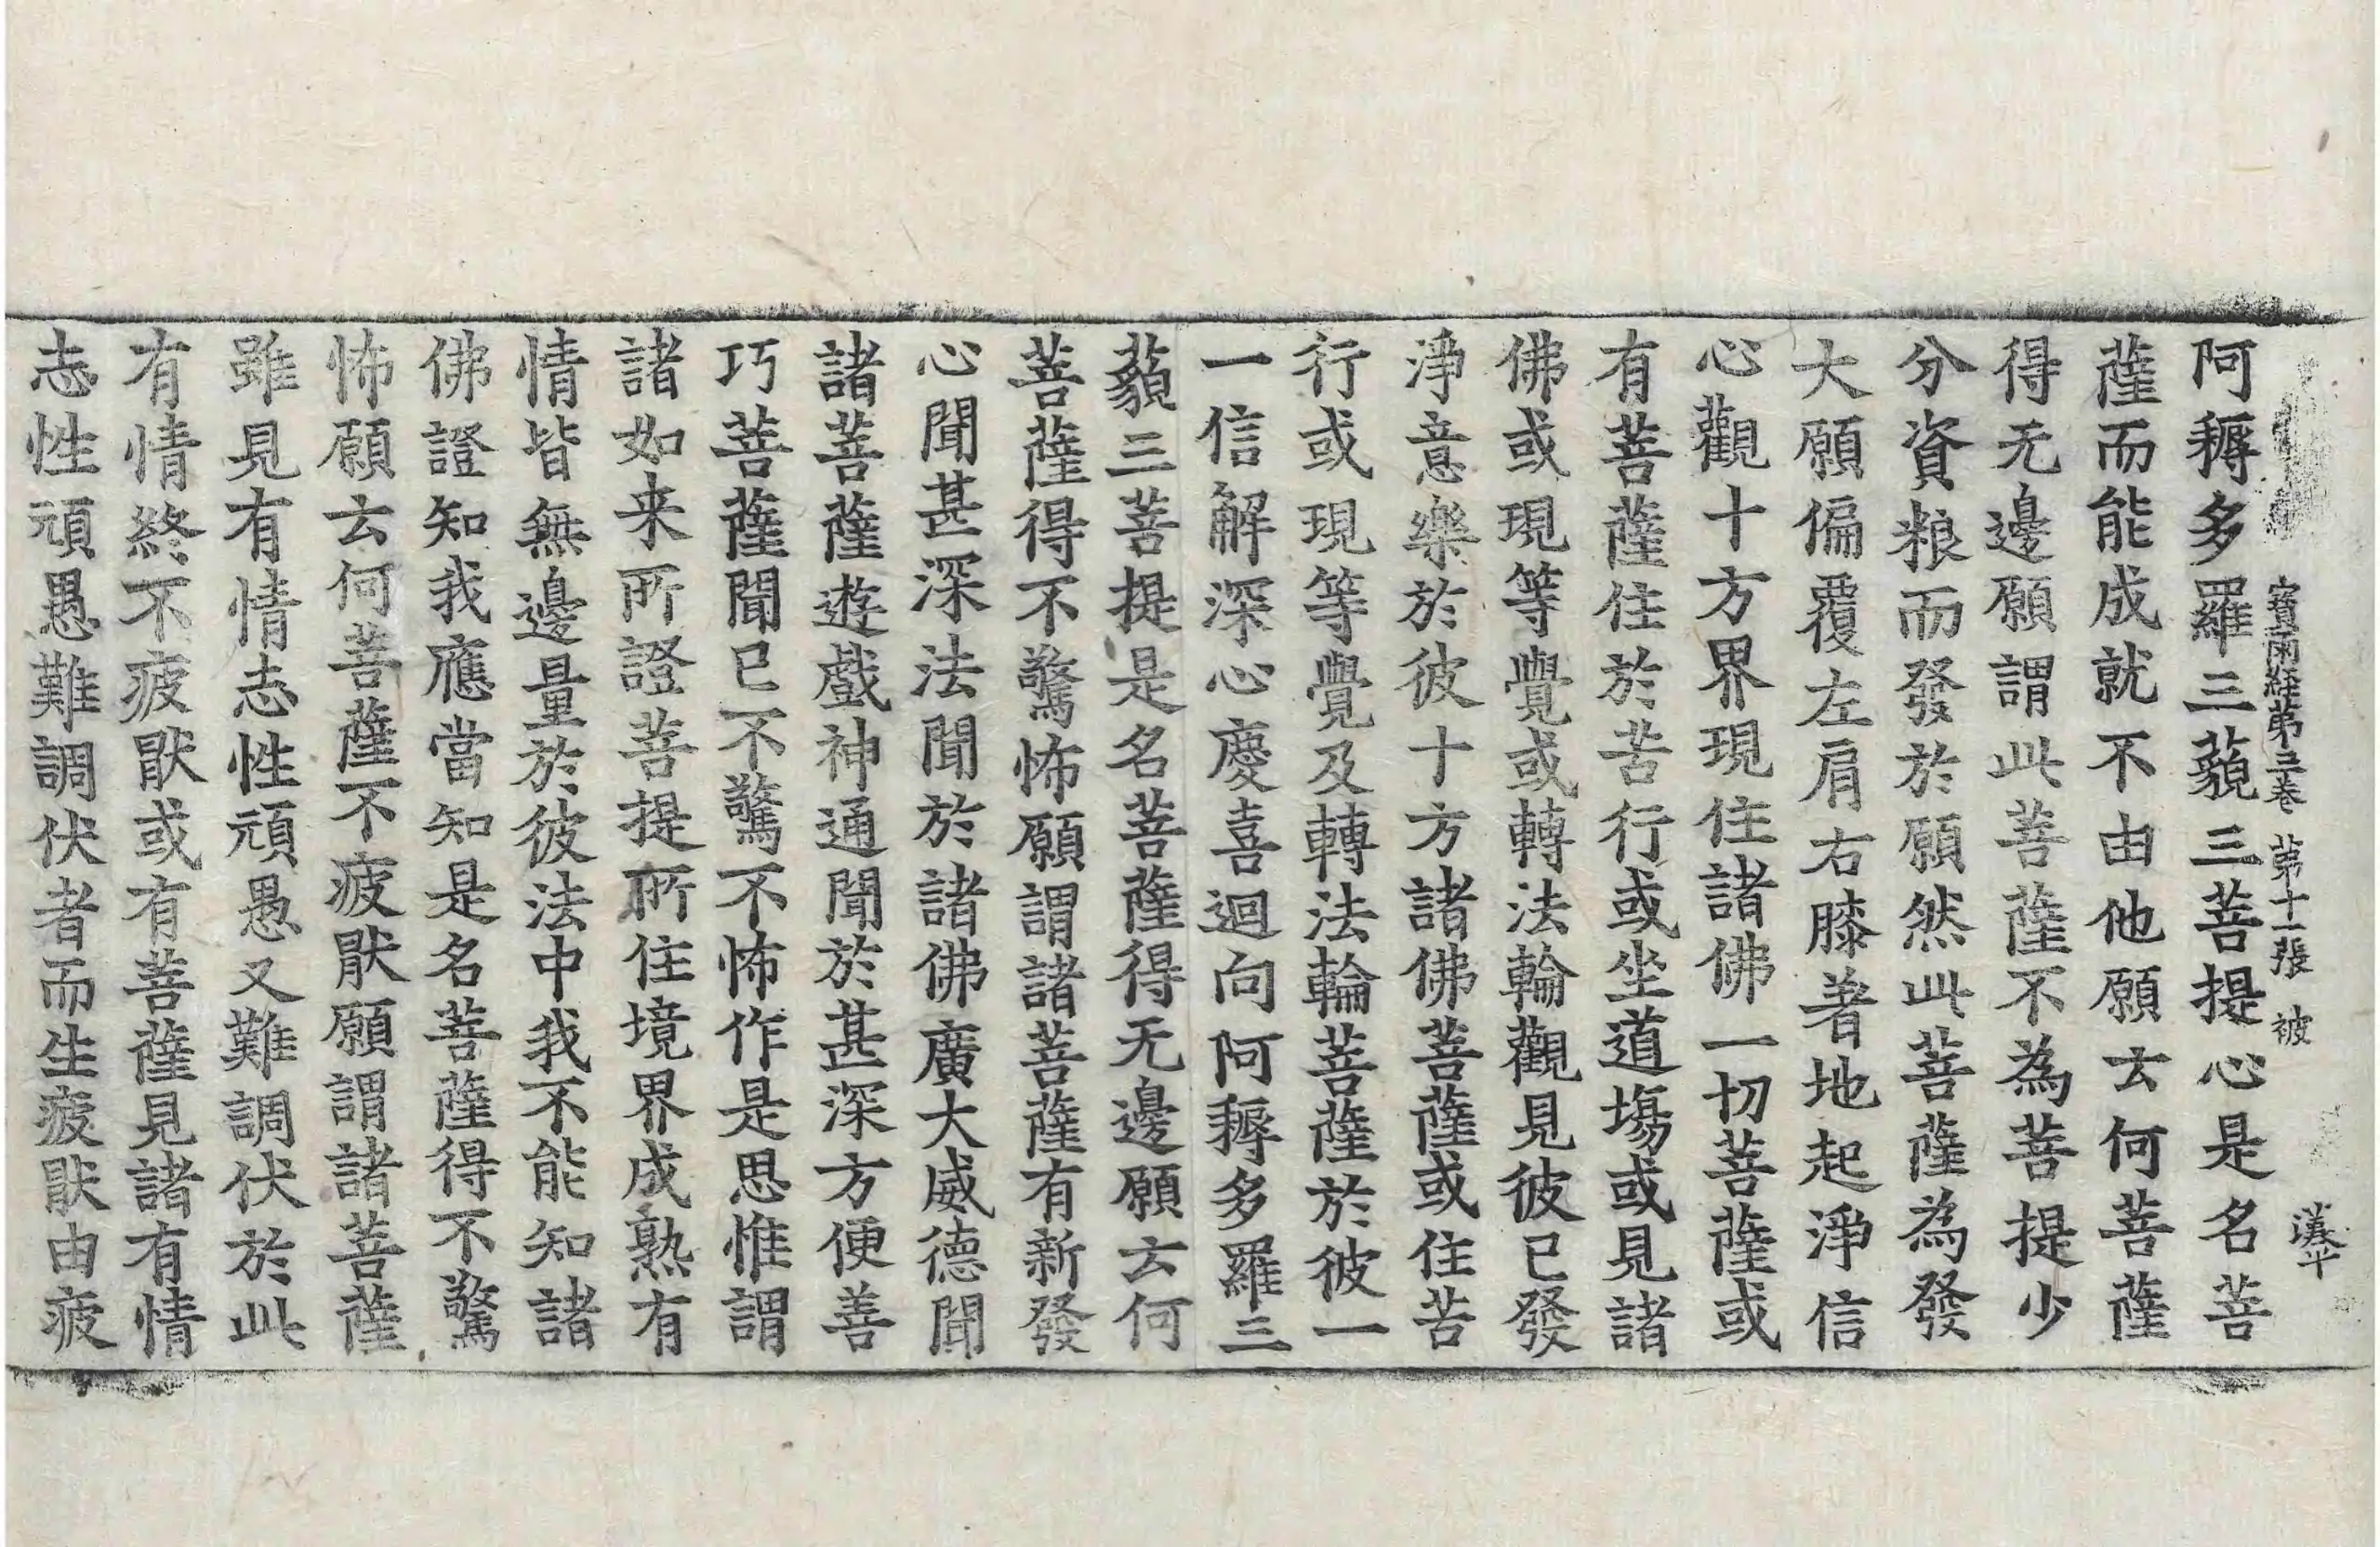 寶雨經第三卷 第十一張 被 漢平
阿耨多羅三藐三菩提心是名菩
薩而能成就不由他願云何菩薩
得无邊願謂此菩薩不為菩提少
分資粮而發於願然此菩薩為發
大願偏覆左肩右膝著地起淨信
心觀十方界現住諸佛一切菩薩或
有菩薩住於苦行或坐道場或見諸
佛或現等覺或轉法輪觀見彼已發
淨意樂於彼十方諸佛菩薩或住苦
行或現等覺及轉法輪菩薩於彼一
一信解深心慶喜迴向阿耨多羅三
藐三菩提是名菩薩得无邊願云何
菩薩得不驚怖願謂諸菩薩有新發
心聞甚深法聞於諸佛廣大威德聞
諸菩薩遊戲神通聞於甚深方便善
巧菩薩聞已不驚不怖作是思惟謂
諸如来所證菩提所住境界成熟有
情皆無邊量於彼法中我不能知諸
佛證知我應當知是名菩薩得不驚
怖願云何菩薩不疲猒願謂諸菩薩
雖見有情志性頑愚又難調伏於此
有情終不疲猒或有菩薩見諸有情
志性頑愚難調伏者而生疲猒由疲